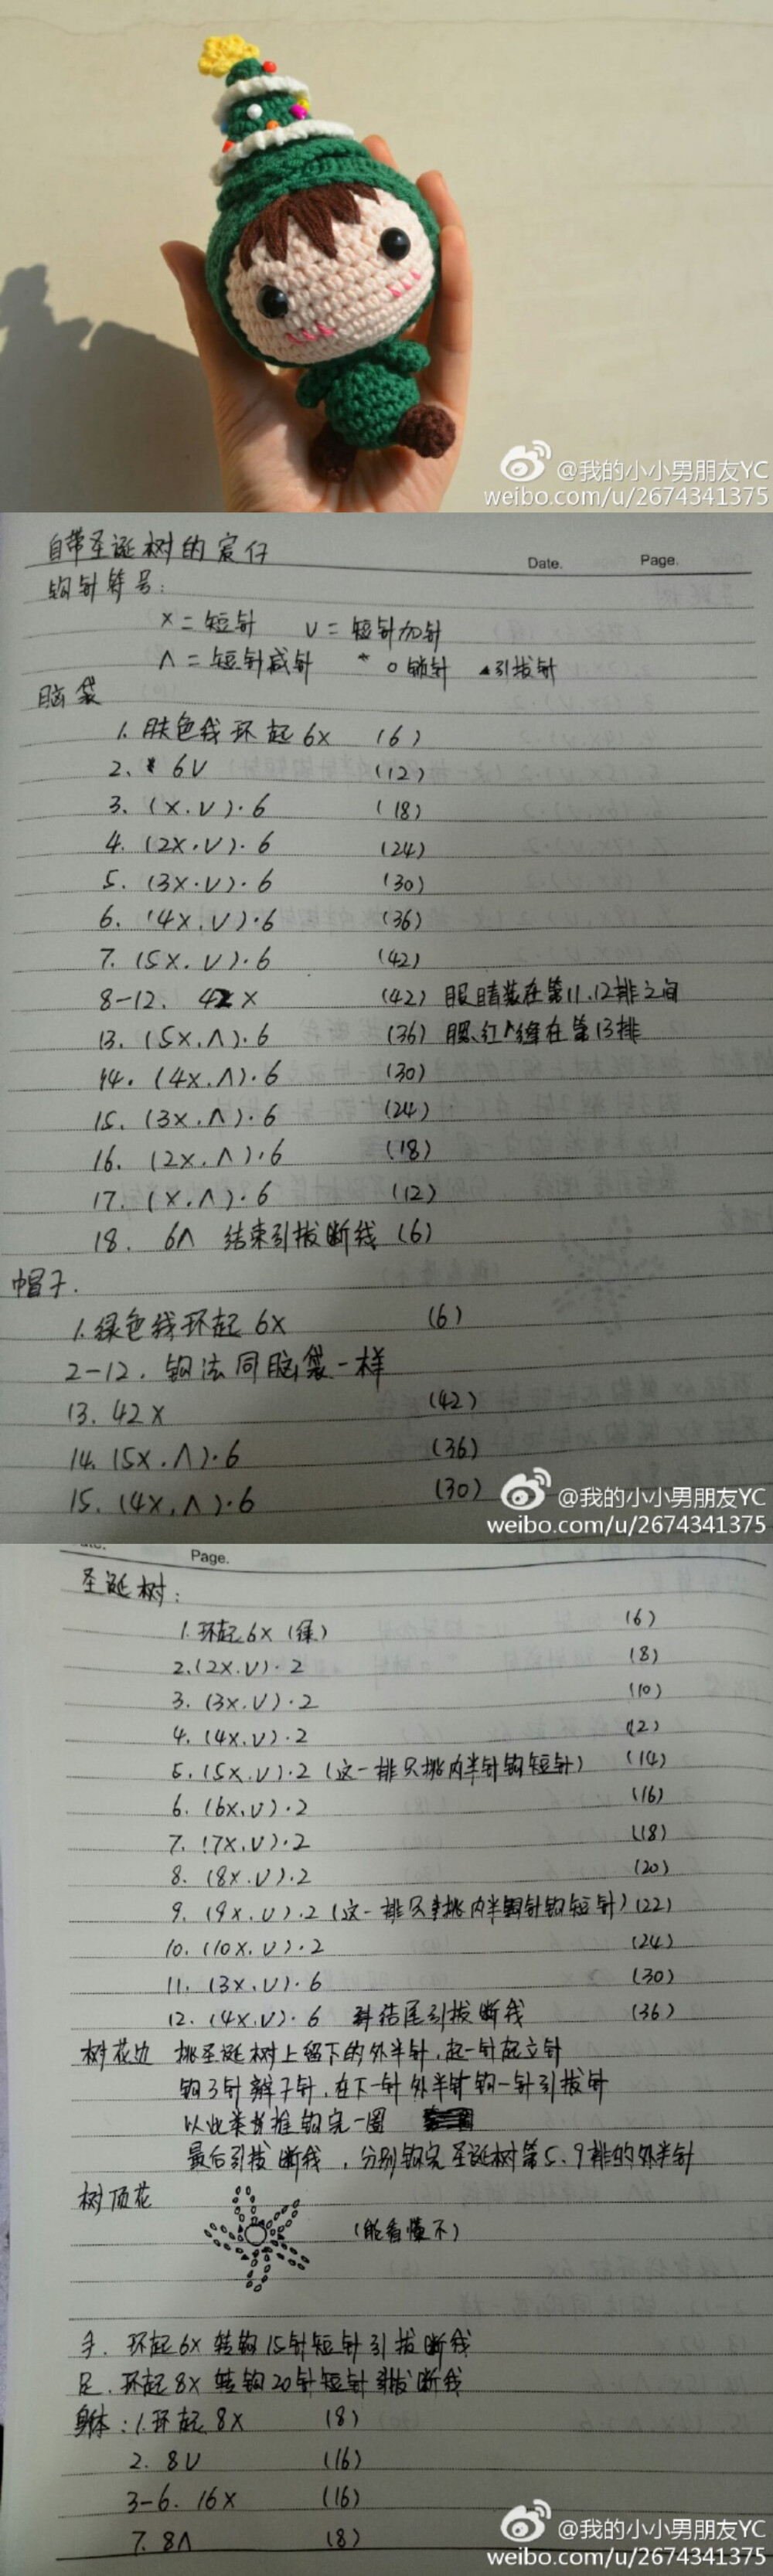 @我的小小男朋友YC
weibo.com/u/2674341375
自带圣诞树的宸仔
Date. Page.
钩针符号:
X = 短针 V = 短针加针
Λ = 短针减针 o 锁针 ▲引拔针
脑袋
1. 肤色线环起 6X (6)
2. 6V (12)
3. (X.V)·6 (18)
4. (2X.V)·6 (24)
5. (3X.V)·6 (30)
6. (4X.V)·6 (36)
7. (5X.V)·6 (42)
8-12. 42X (42) 眼睛装在第11.12排之间
13. (5X.Λ)·6 (36) 腮红缝在第13排
14. (4X.Λ)·6 (30)
15. (3X.Λ)·6 (24)
16. (2X.Λ)·6 (18)
17. (X.Λ)·6 (12)
18. 6Λ 结束引拔断线 (6)
帽子.
1. 绿色线环起 6X (6)
2-12. 钩法同脑袋一样
13. 42X (42)
14. (5X.Λ)·6 (36)
15. (4X.Λ)·6 (30)
@我的小小男朋友YC
weibo.com/u/2674341375
Page.
圣诞树:
1. 环起6X (绿) (6)
2. (2X.V)·2 (8)
3. (3X.V)·2 (10)
4. (4X.V)·2 (12)
5. (5X.V)·2 (这一排只挑内半针钩短针) (14)
6. (6X.V)·2 (16)
7. (7X.V)·2 (18)
8. (8X.V)·2 (20)
9. (9X.V)·2 (这一排只挑内半针钩短针) (22)
10. (10X.V)·2 (24)
11. (3X.V)·6 (30)
12. (4X.V)·6 结尾引拔断线 (36)
树花边 挑圣诞树上留下的外半针,起一针起立针
钩3针辫子针,在下一针外半针钩一针引拔针
以此类推钩完一圈
最后引拔断线,分别钩完圣诞树第5.9排的外半针
树顶花 (能看懂不)
手. 环起6X 转钩15针短针引拔断线
足. 环起8X 转钩20针短针引拔断线
身体: 1. 环起8X (8)
2. 8V (16)
3-6. 16X (16)
7. 8Λ (8)
@我的小小男朋友YC
weibo.com/u/2674341375